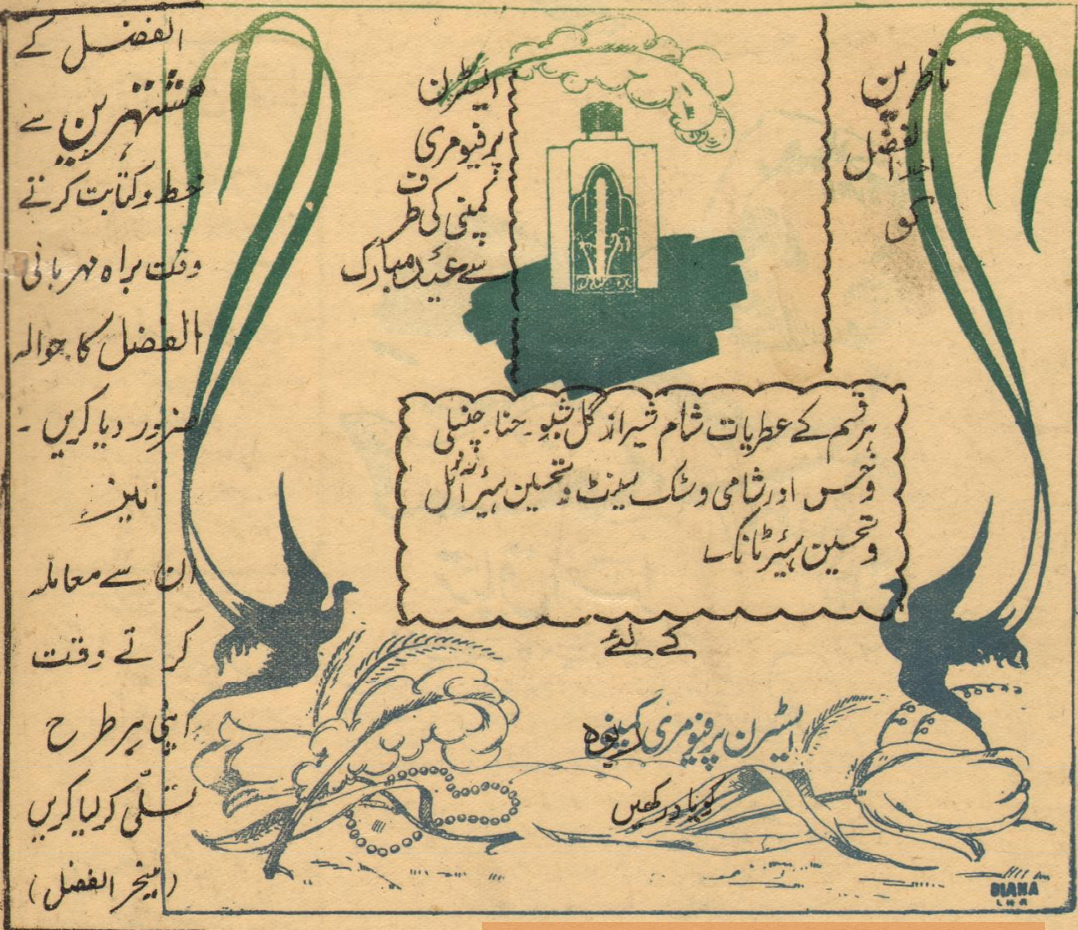 ناظرین
اخبار الفضل
کو
ایسٹرن
پرفیومری
کمپنی کی طرف
سے عید مبارک
ہر قسم کے عطریات شام شیراز گل شبو۔ حنا۔ چنبیلی
وخس اور شامی و شک سینٹ و تحسین ہیئر آئل
و تحسین ہیئر ٹانک
کے لئے
ایسٹرن پرفیومری کمپنی ربوہ
کو یاد رکھیں
DIANA
LHR
الفضل کے
مشتہرین سے
خط و کتابت کرتے
وقت براہ مہربانی
الفضل کا حوالہ
ضرور دیا کریں ۔
نیز
ان سے معاملہ
کرتے وقت
اپنی ہر طرح
تسلّی کر لیا کریں
(مینجر الفضل)